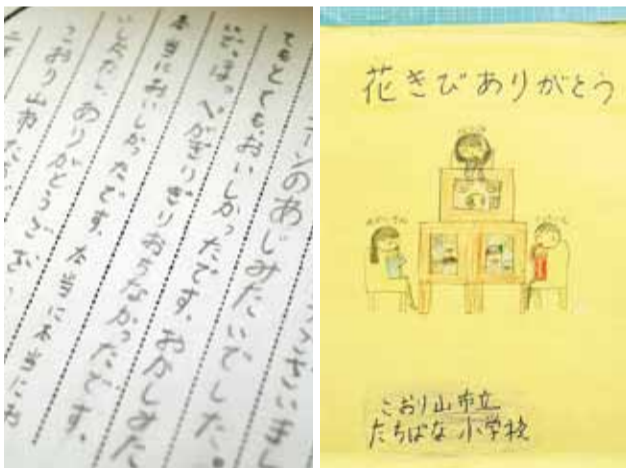 うございまし
ーンのあじみたいでした。
てもとても、おいしかったです。おかしみた
いで、ほっぺがぎりぎりおちなかったです。
本当においしかったです。本当に本当にお
いしかった ありがとうござい
こおり山市 た
花きびありがとう
こおり山市立
たちばな小学校